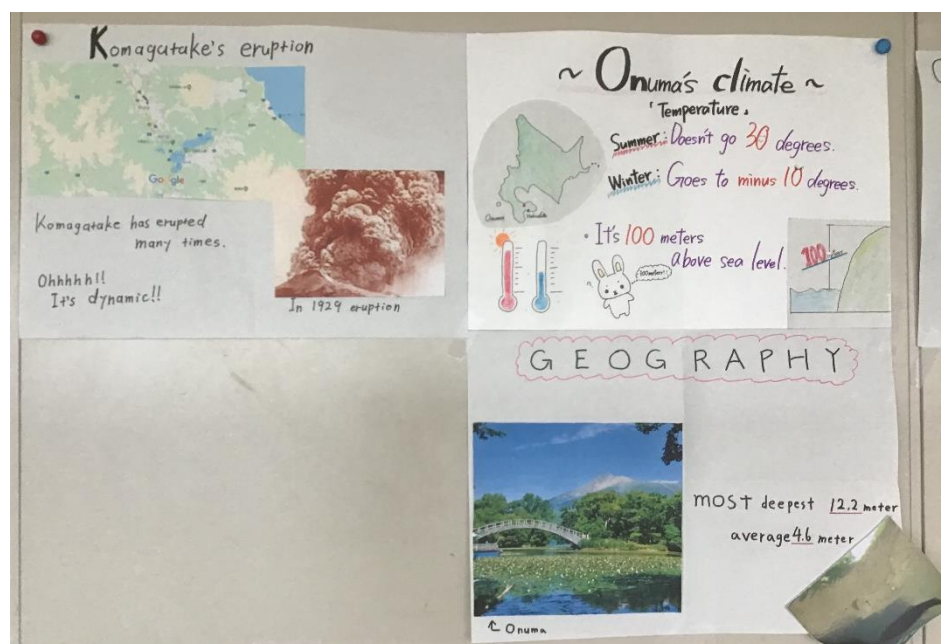 Komagatake's eruption
Google
Komagatake has erupted
many times.
Ohhhhh!!
It's dynamic!!
In 1929 eruption
~ Onuma's climate ~
「Temperature」
Summer: Doesn't go 30 degrees.
Winter: Goes to minus 10 degrees.
Onuma
・It's 100 meters
above sea level.
100meter!!
100
GEOGRAPHY
MOST deepest 12.2 meter
average 4.6 meter
↑ Onuma